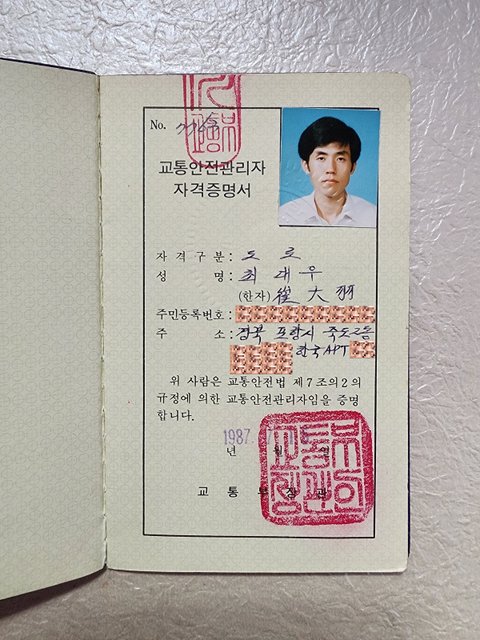 No.
교통안전관리자
자격증명서
자격구분: 도 로
성 명: 최 대 우
(한자) 崔 大 羽
주민등록번호:
주 소: 경북 포항시 죽도2동
한국APT
위 사람은 교통안전법 제7조의2의
규정에 의한 교통안전관리자임을 증명
합니다.
1987.
년 월 일
교 통 부 장 관